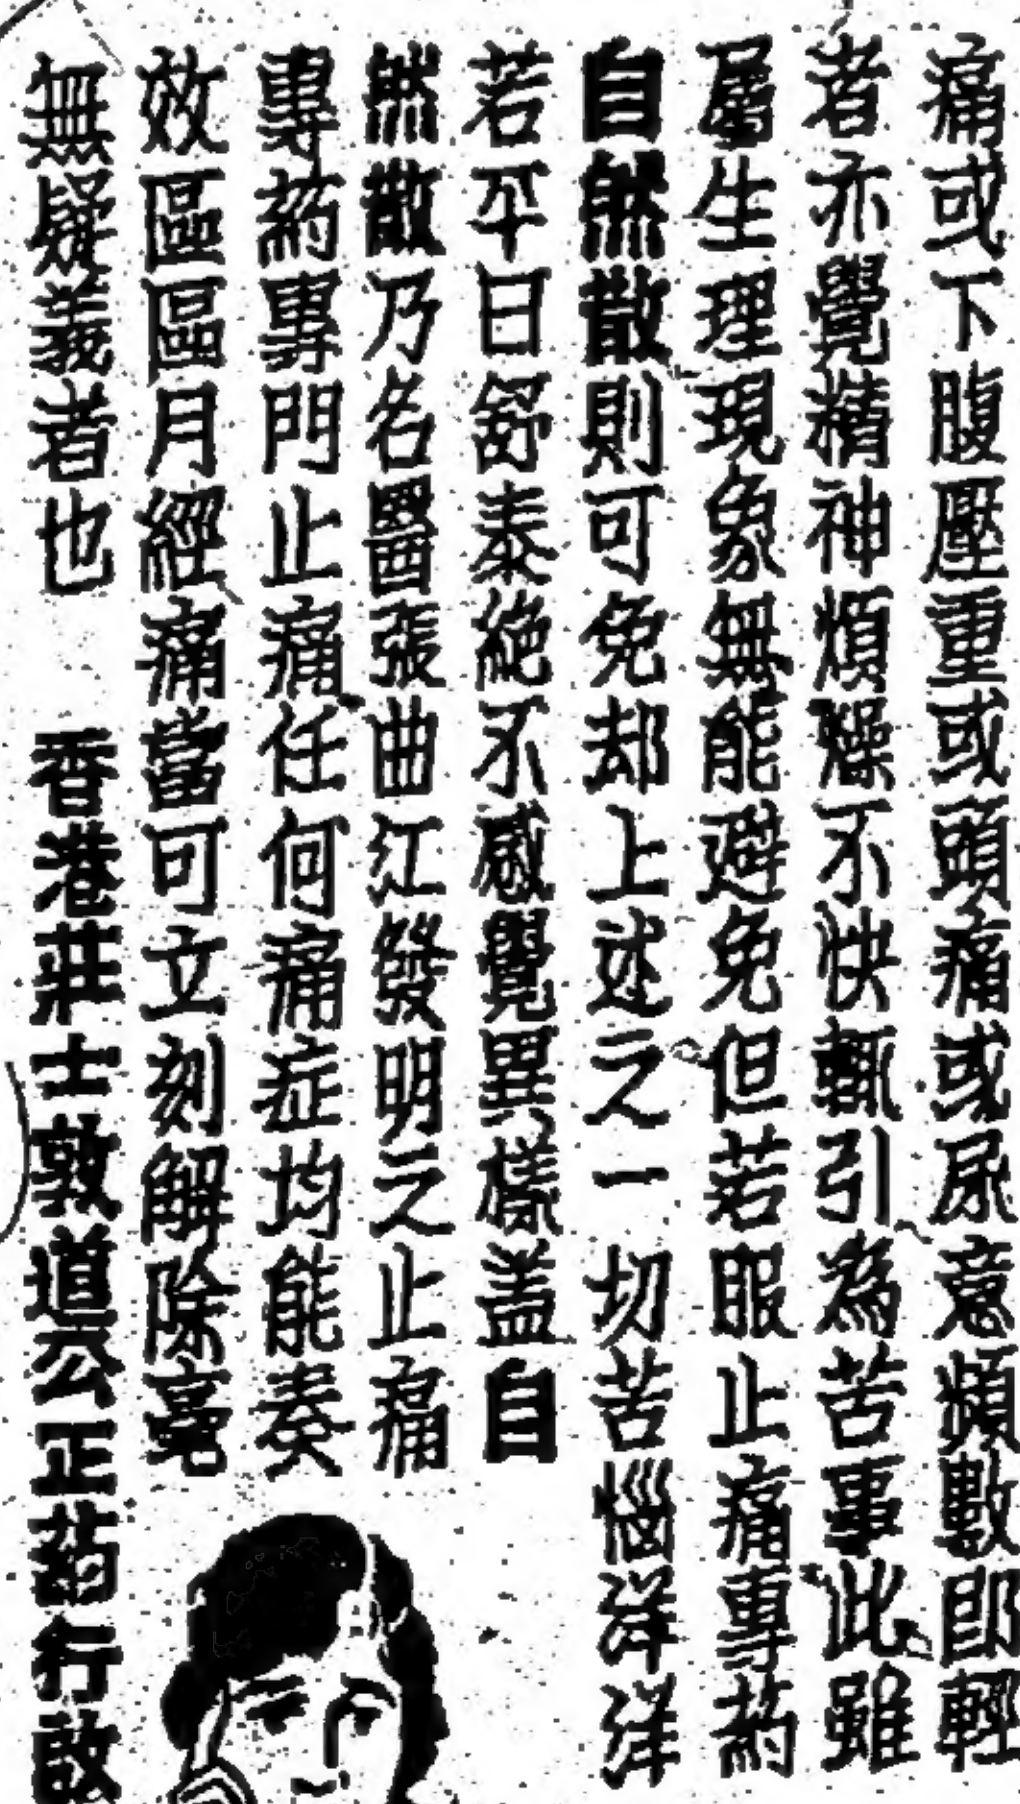 痛或下腹壓重或頭痛或尿意頻數卽輕
者亦覺精神煩燥不快輒引為苦事此雖
屬生理現象無能避免但若服止痛專葯
自然散則可免却上述之一切苦惱洋洋
若平日舒泰絶不感覺異樣盖自
然散乃名醫張曲江發明之止痛
專葯專門止痛任何痛症均能奏
效區區月經痛當可立刻解除毫
無疑義者也 香港莊士敦道公正葯行啟